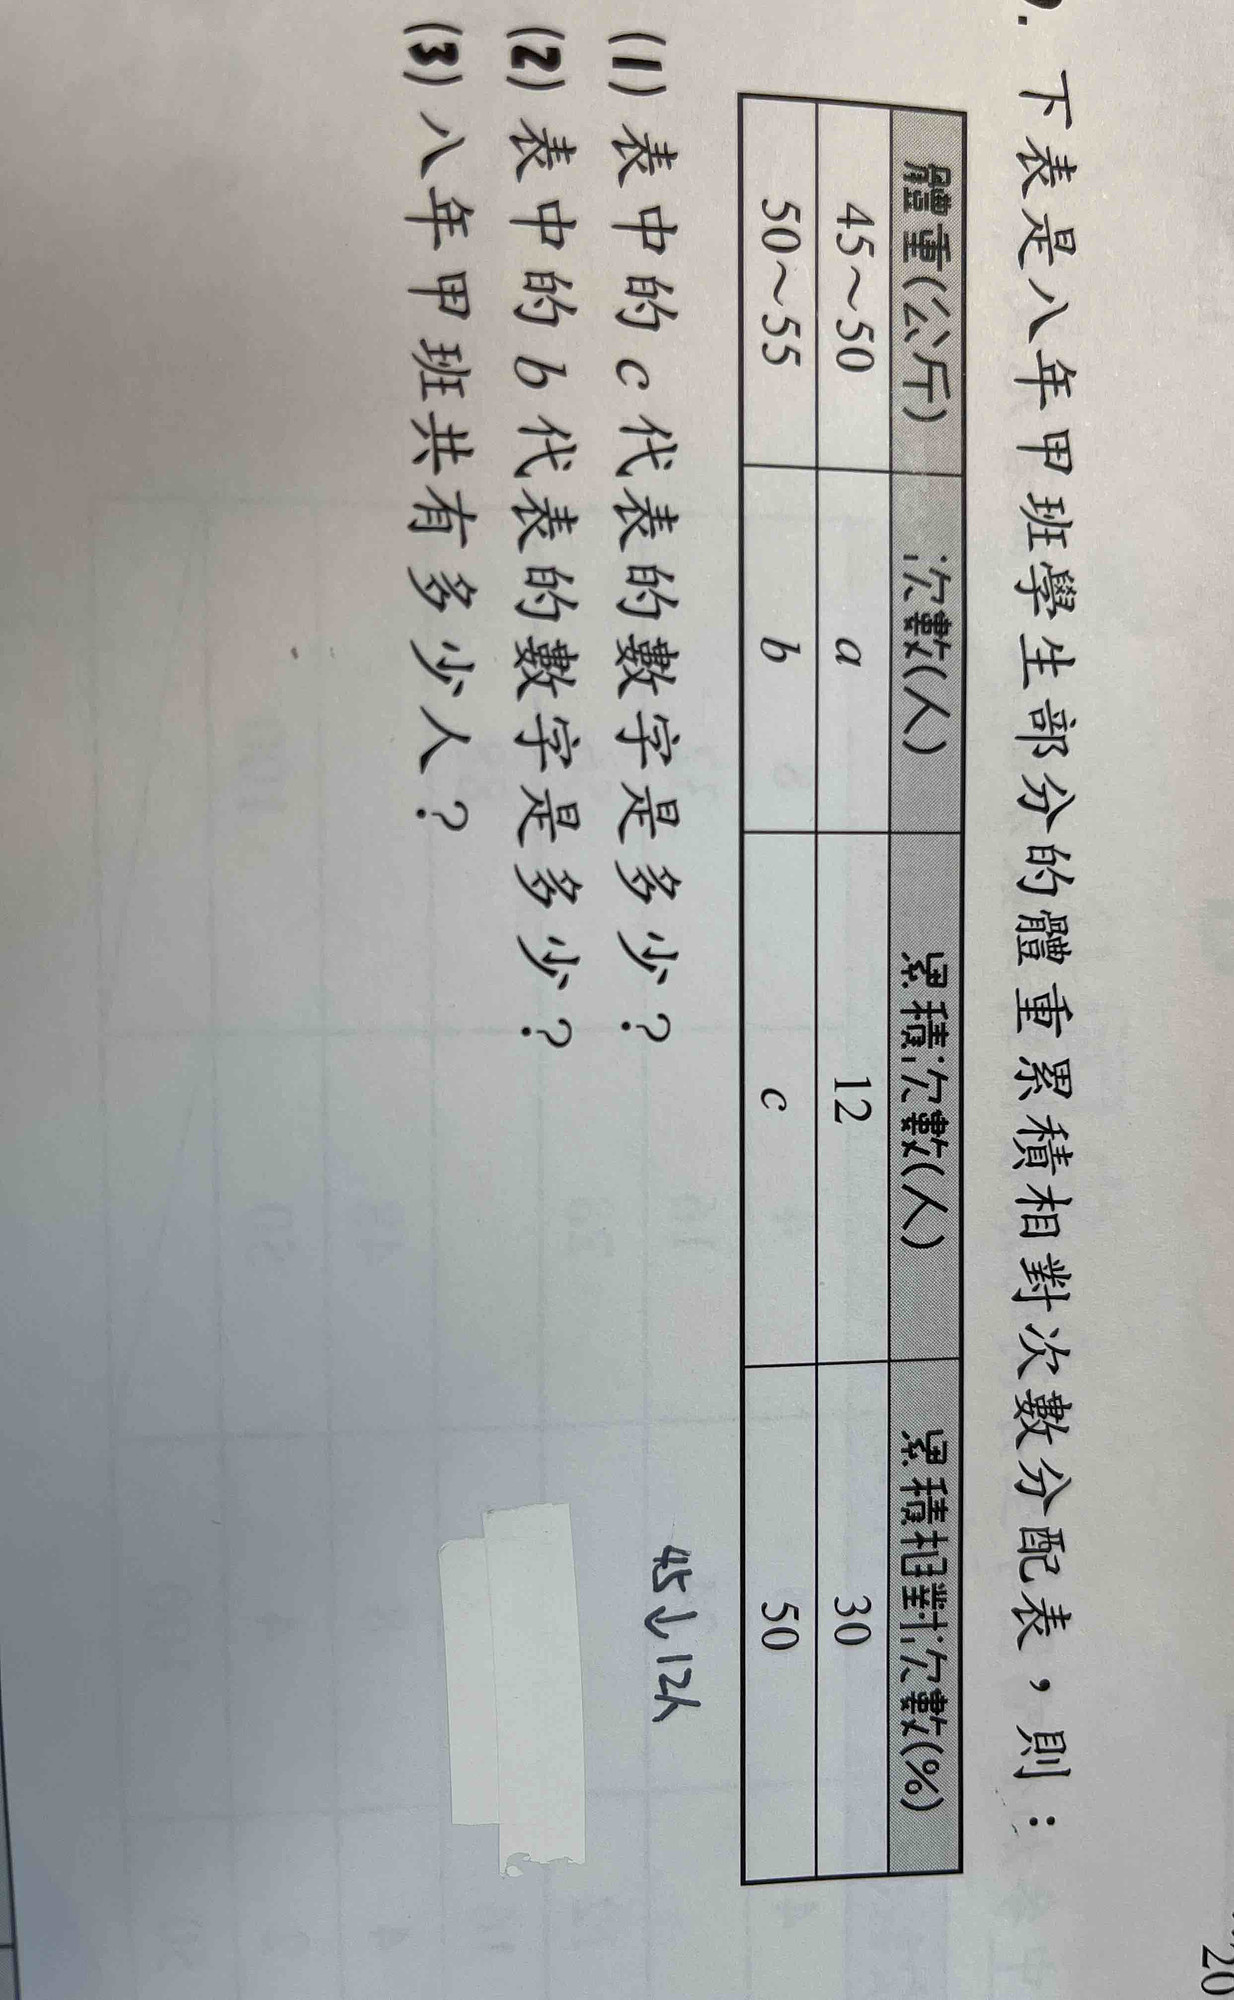 下表是八年甲班學生部分的體重累積相對次數分配表，則：
體重(公斤) 次數(人) 累積次數(人) 累積相對次數(%)
45～50 a 12 30
50～55 b c 50
(1) 表中的 c 代表的數字是多少？
(2) 表中的 b 代表的數字是多少？
(3) 八年甲班共有多少人？
45↓12人
20